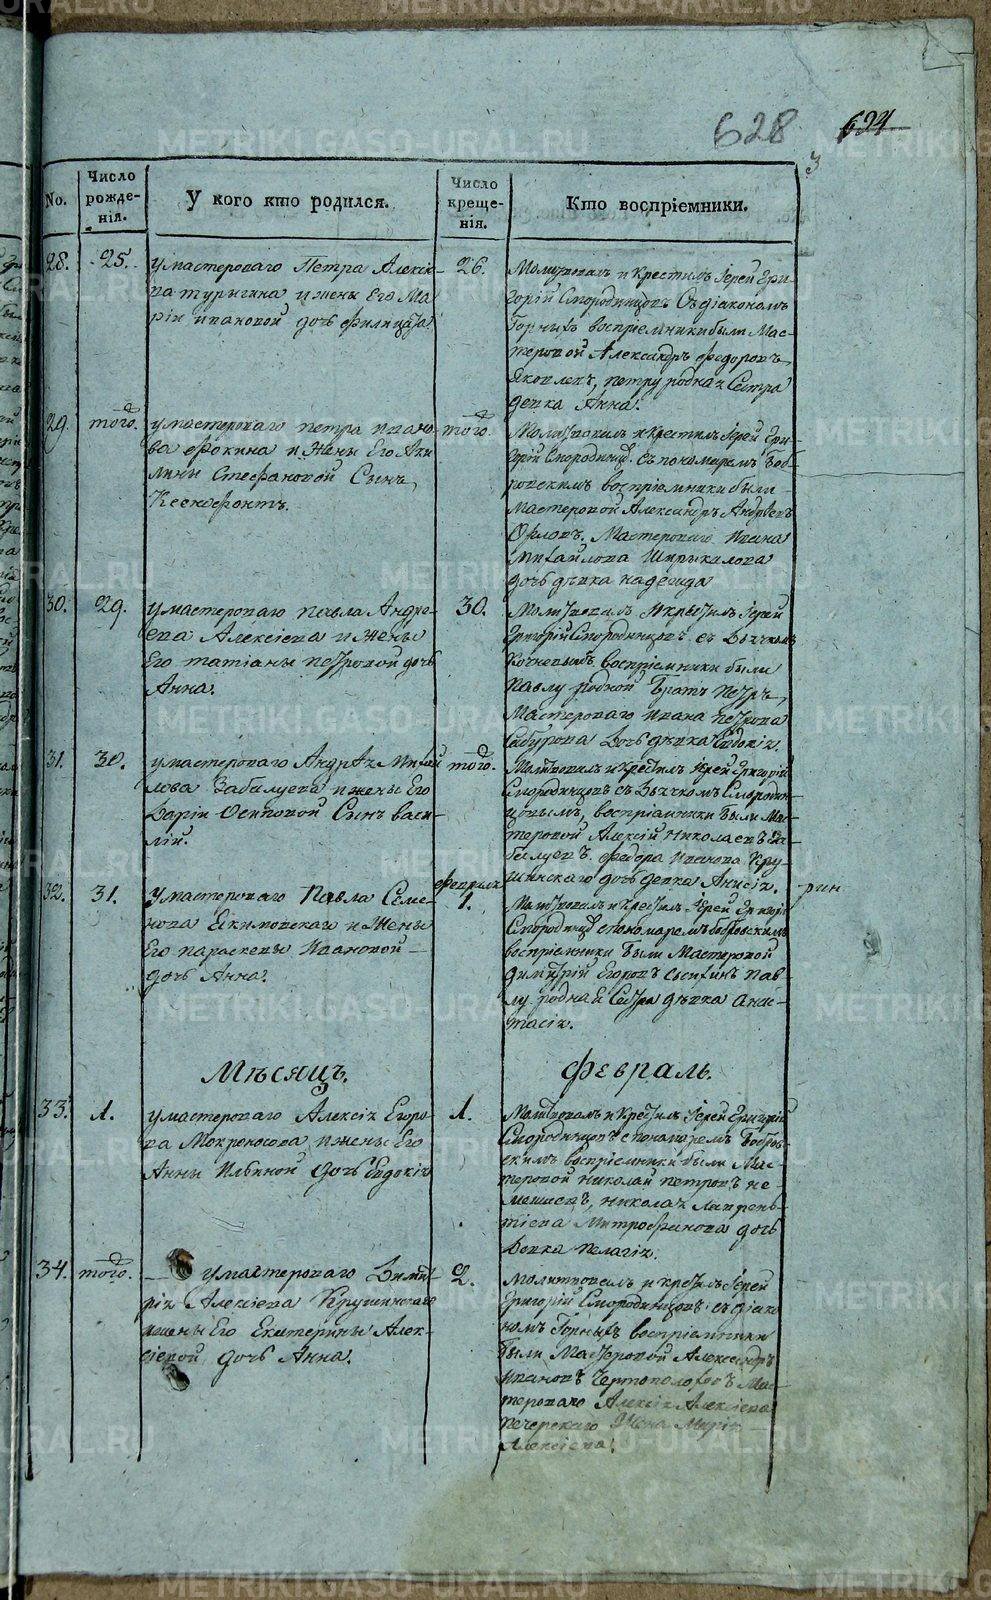 628 624
3
No.
Число рожде-нія.
У кого кто родился.
Число креще-нія.
Кто воспріемники.
28.
25.
у мастероваго Петра Алексіе-
ва турыгина и жены Его Ма-
ріи ивановой дочь Филицата.
26.
Молитвовалъ и Крестилъ Іерей Гри-
горій Смородинцовъ Съ діакономъ
Горныхъ воспріемники были Мас-
теровой Александръ Федоровъ
Яковлевъ, петру родная Сестра
девка Анна.
29.
того.
у мастероваго петра ивано-
ва Фокина и Жены Его Аки-
лины Стефановой Сынъ
Ксенофонтъ.
того.
Молитвовалъ и Крестилъ Іерей Гри-
горій Смородинц. съ пономаремъ Боб-
ровскимъ воспріемники были
Мастеровой Александръ Андреевъ
Орловъ. Мастероваго Ивана
Михайлова
дочь дѣвка надежда
30.
29.
у мастероваго павла Андре-
ева Алексіева и Жены
Его татіаны петровой дочь
Анна.
30.
Молитвовалъ и крестилъ Іерей
Григорій Смородинцовъ съ Дьячкомъ
воспріемники были
павлу родной Братъ петръ,
Мастероваго ивана петрова
Сабурова Дочь дѣвка Евдокія.
31.
30.
у мастероваго Андрея Михай
лова Забалуева и жены Его
Даріи Осиповой Сынъ васи-
лій.
того.
Молитвовалъ и Крестилъ Іерей Григорій
Смородинцовъ съ Дьячкомъ Смородин-
цовымъ, воспріемники были Мас-
теровой Алексій Николаевъ За-
балуевъ. Федора Иванова Кру-
шинскаго дочь девка Анисія.
32.
31.
У мастероваго Павла Семе-
нова Екимовскаго и Жены
Его параскевы Ивановой
дочь Анна.
февраля
1.
Молитвовалъ и Крестилъ Іерей Григорій
Смородинц. с пономаремъ Бобровскимъ
воспріемники Были Мастеровой
димитрій Егоровъ пав-
лу родная Сестра дѣвка Анас-
тасія.
Мѣсяцъ.
Февраль.
33.
1.
у мастероваго Алексія Егоро-
ва Мокроносова и жены Его
Анны Ильиной дочь Евдокія
1.
Молитвовалъ и Крестилъ Іерей Григорій
Смородинцовъ с пономаремъ Бобров-
скимъ воспріемники были Мас-
теровой николай петровъ не-
николая лаврень-
тіева Митрофанова дочь
Девка пелагія.
34.
того.
у мастероваго Димит-
рія Алексіева Крушинскаго
и жены Его Екатерины Алек-
сіевой дочь Анна.
2.
Молитвовалъ и крестилъ Іерей
Григорій Смородинцовъ съ діако-
номъ Горныхъ воспріемники
Были Мастеровой Александръ
ивановъ Чертополоховъ Мас-
тероваго Алексія Алексіева
печерскаго Жена Марія
Алексіева.
METRIKI.GASO-URAL.RU